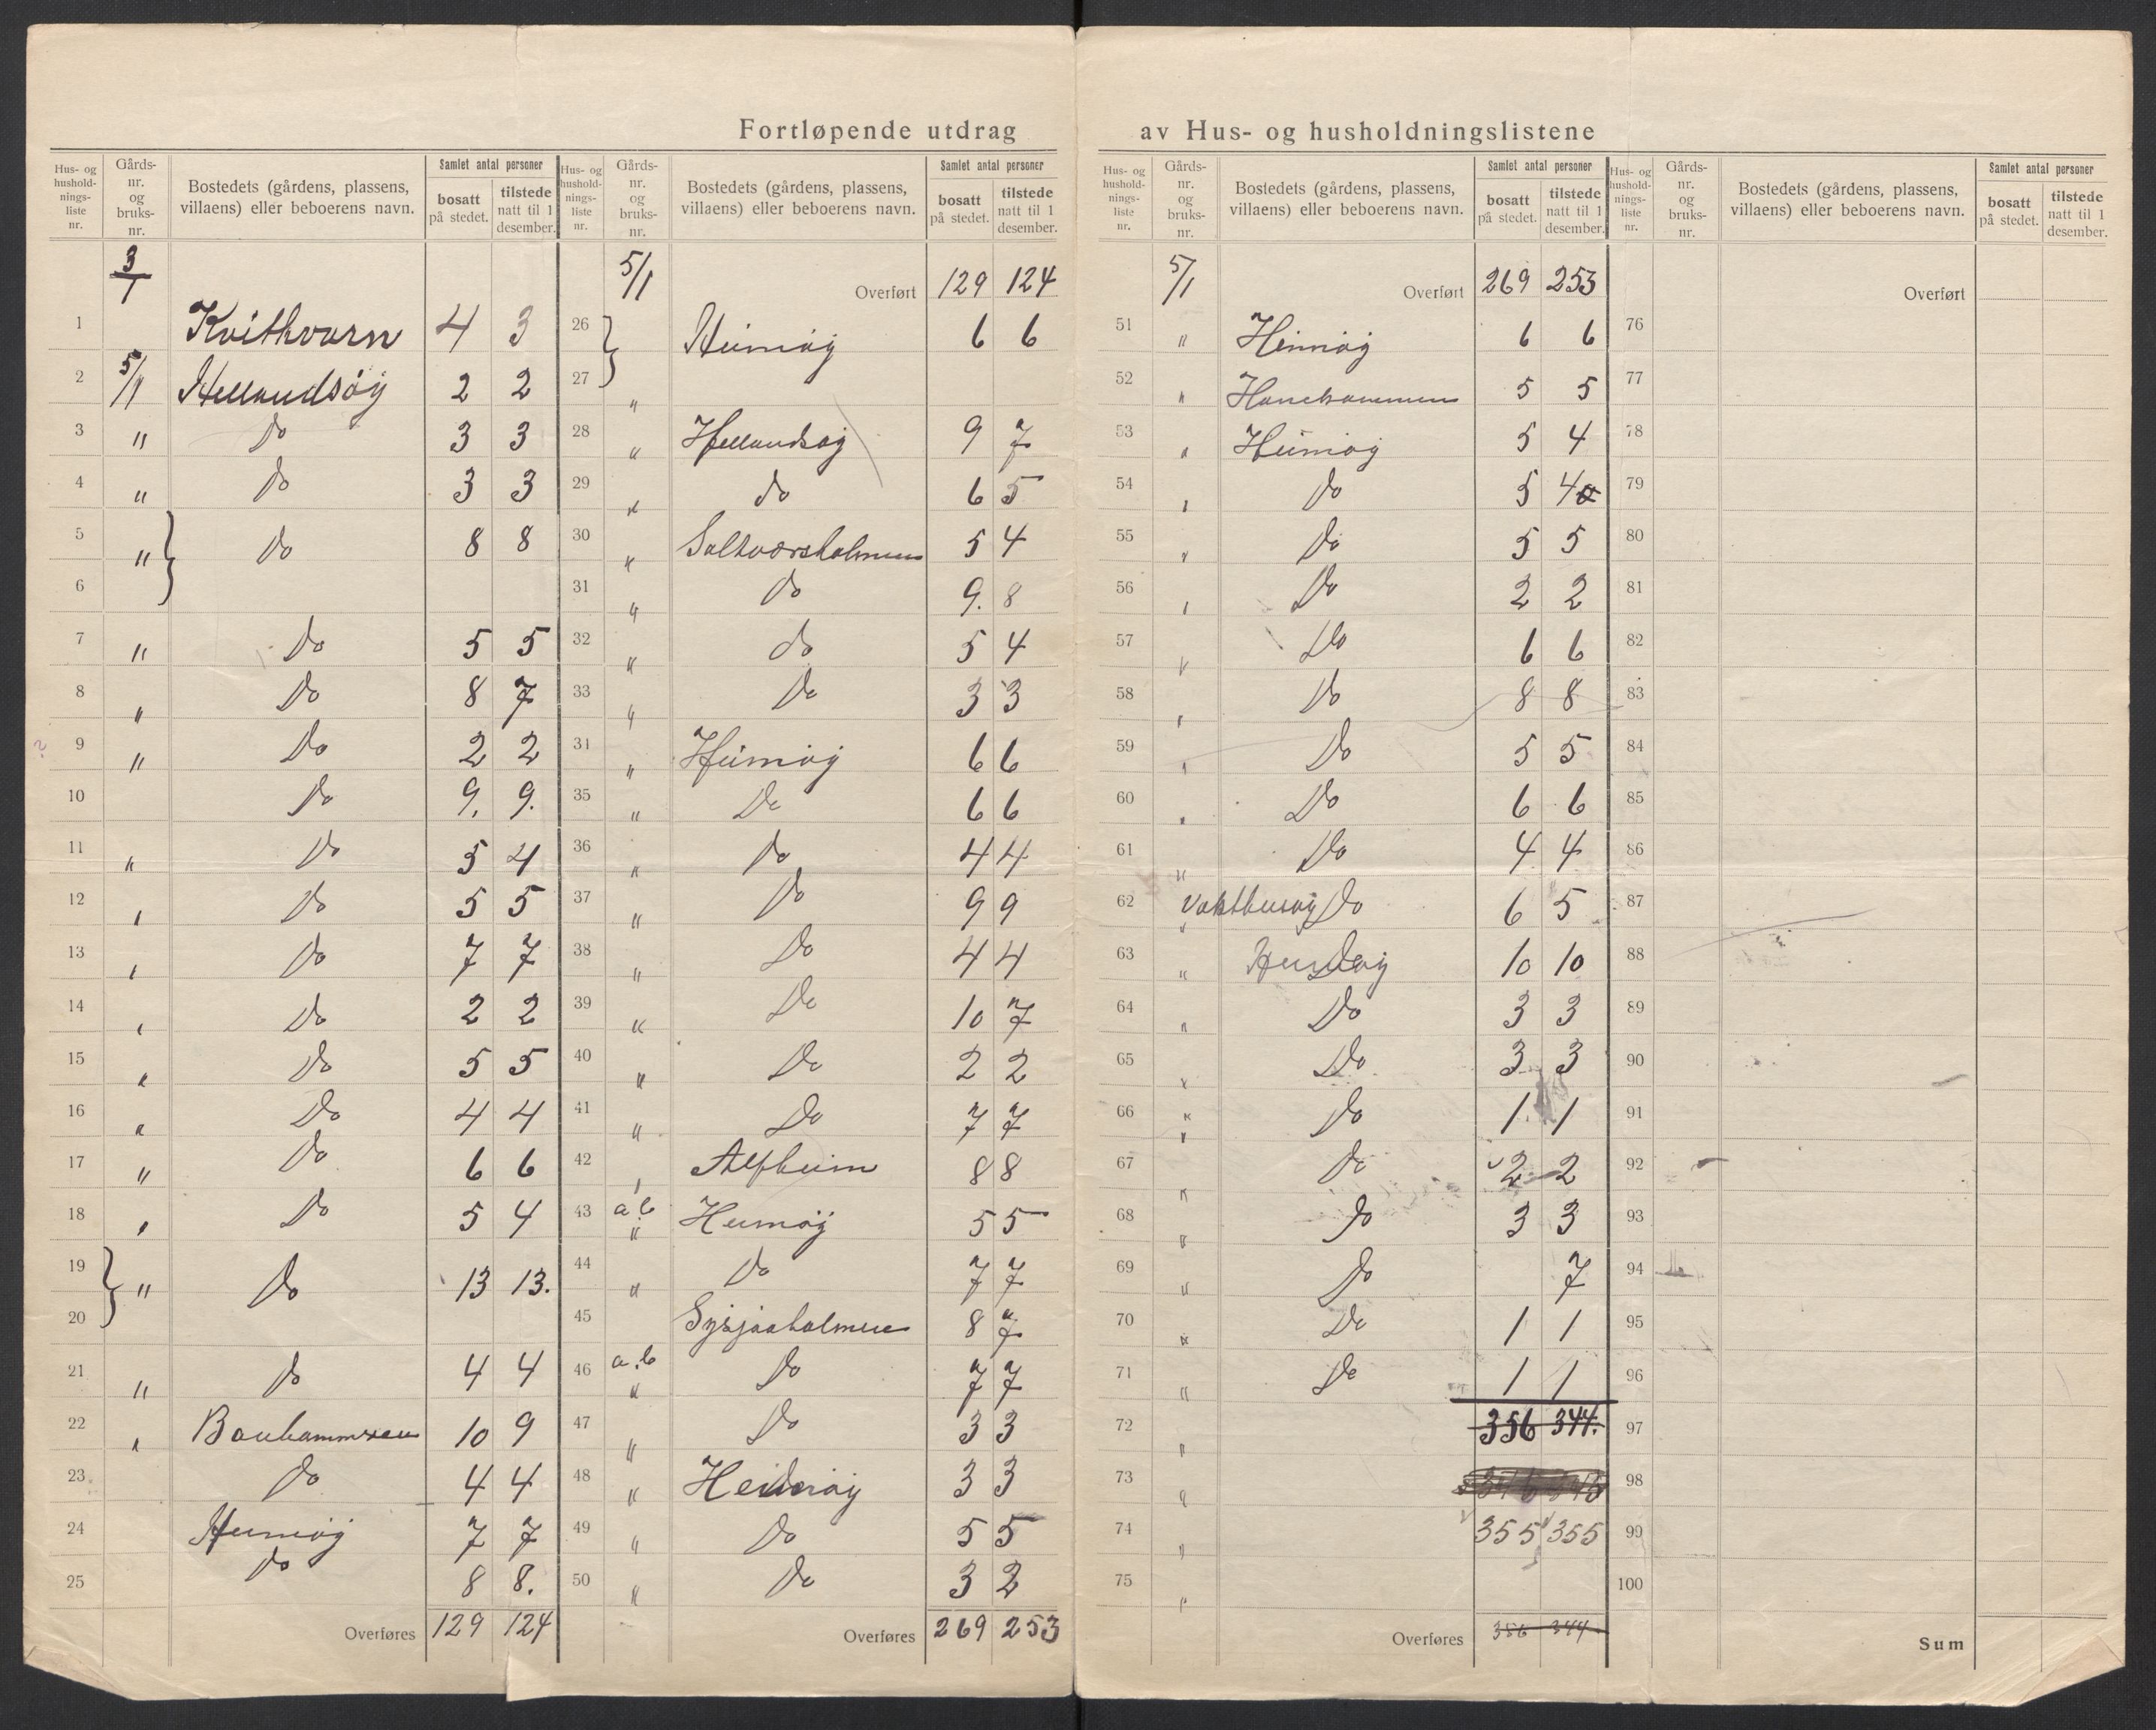 Fortløpende utdrag av Hus- og husholdningslistene
Hus- og hushold-nings-liste nr. | Gårds-nr. og bruks-nr. | Bostedets (gårdens, plassens, villaens) eller beboerens navn. | Samlet antal personer | bosatt på stedet. | tilstede natt til 1 desember.
3/1
1 Kvithvarn 4 3
2 5/1 Hellandsöy 2 2
3 " Do 3 3
4 " Do 3 3
5 " } Do 8 8
6
7 " Do 5 5
8 " Do 8 7
9 " Do 2 2
10 Do 9. 9.
11 " Do 5 4
12 " Do 5 5
13 " Do 7 7
14 " Do 2 2
15 " Do 5 5
16 " Do 4 4
17 " Do 6 6
18 " Do 5 4
19 } " Do 13 13.
20
21 " Do 4 4
22 " 10 9
23 Do 4 4
24 Heimöy 7 7
25 Do 8 8.
Overføres 129 124
Hus- og hushold-nings-liste nr. | Gårds-nr. og bruks-nr. | Bostedets (gårdens, plassens, villaens) eller beboerens navn. | Samlet antal personer | bosatt på stedet. | tilstede natt til 1 desember.
5/1 Overført 129 124
26 } Heimöy 6 6
27 "
28 " Hellandsøy 9 7
29 " do 6 5
30 " Saltværsholmen 5 4
31 " Do 9. 8
32 " do 5 4
33 " Do 3 3
31 " Heimöy 6 6
35 " Do 6 6
36 " Do 4 4
37 " Do 9 9
38 " Do 4 4
39 " Do 10 7
40 " Do 2 2
41 " Do 7 7
42 " Alfheim 8 8
43 a b " Heimöy 5 5
44 " Do 7 7
45 8 7
46 a.b " Do 7 7
47 " Do 3 3
48 " 3 3
49 " Do 5 5
50 " Do 3 2
Overføres 269 253
Hus- og hushold-nings-liste nr. | Gårds-nr. og bruks-nr. | Bostedets (gårdens, plassens, villaens) eller beboerens navn. | Samlet antal personer | bosatt på stedet. | tilstede natt til 1 desember.
5/1 Overført 269 253
51 " Heimöy 6 6
52 " Hanekammen 5 5
53 " Heimöy 5 4
54 " Do 5 4
55 " Do 5 5
56 " Do 2 2
57 " Do 6 6
58 " Do 8 8
59 " Do 5 5
60 " Do 6 6
61 " Do 4 4
62 " Vakthusøy Do 6 5
63 " 10 10
64 " Do 3 3
65 " Do 3 3
66 " Do 1 1
67 " Do 2 2
68 " Do 3 3
69 " Do 7
70 " Do 1 1
71 " Do 1 1
72 " 356 344.
73 "
74 " 355 355
75 "
Overføres 356 344
Hus- og hushold-nings-liste nr. | Gårds-nr. og bruks-nr. | Bostedets (gårdens, plassens, villaens) eller beboerens navn. | Samlet antal personer | bosatt på stedet. | tilstede natt til 1 desember.
Overført
76
77
78
79
80
81
82
83
84
85
86
87
88
89
90
91
92
93
94
95
96
97
98
99
100
Sum